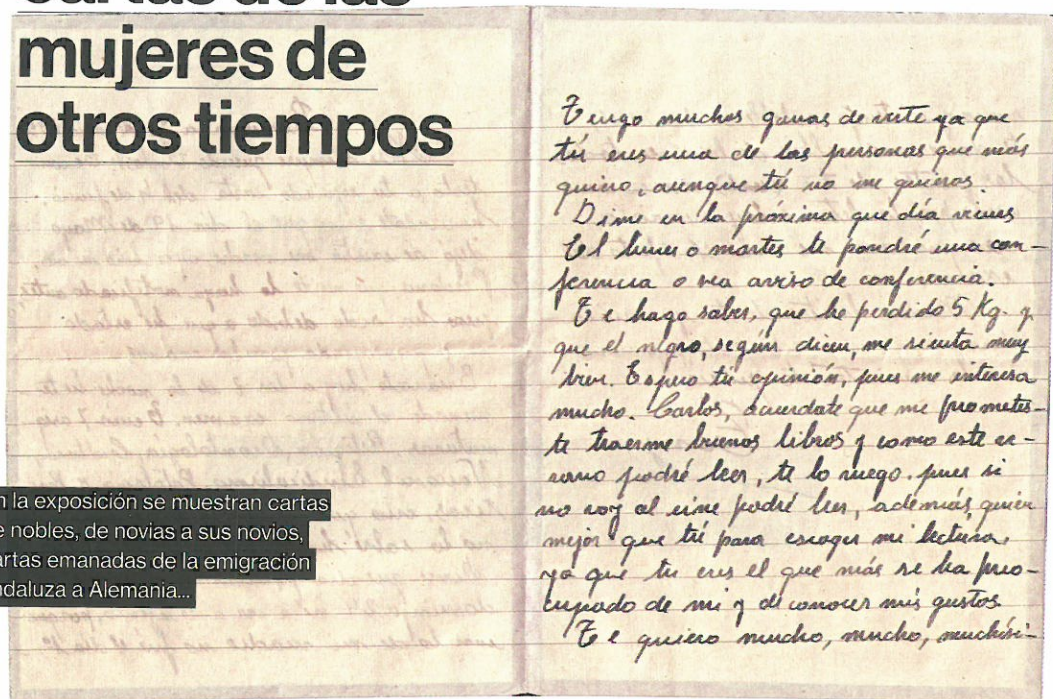 cartas de las
mujeres de
otros tiempos
n la exposición se muestran cartas
e nobles, de novias a sus novios,
artas emanadas de la emigración
ndaluza a Alemania...
Tengo muchas ganas de verte ya que
tú eres una de las personas que más
quiero, aunque tú no me quieras.
Dime en la próxima que día vienes
El lunes o martes te pondré una con-
ferencia o sea aviso de conferencia.
Te hago saber, que he perdido 5 Kg. y
que el negro, según dicen, me sienta muy
bien. Espero tú opinión, pues me interesa
mucho. Carlos, acuerdate que me prometis-
te traerme buenos libros y como este ve-
rano podré leer, te lo ruego. pues si
no voy al cine podré leer, además quien
mejor que tú para escoger mi lectura,
ya que tu eres el que más se ha preo-
cupado de mi y de conocer mis gustos.
Te quiero mucho, mucho, muchísi-